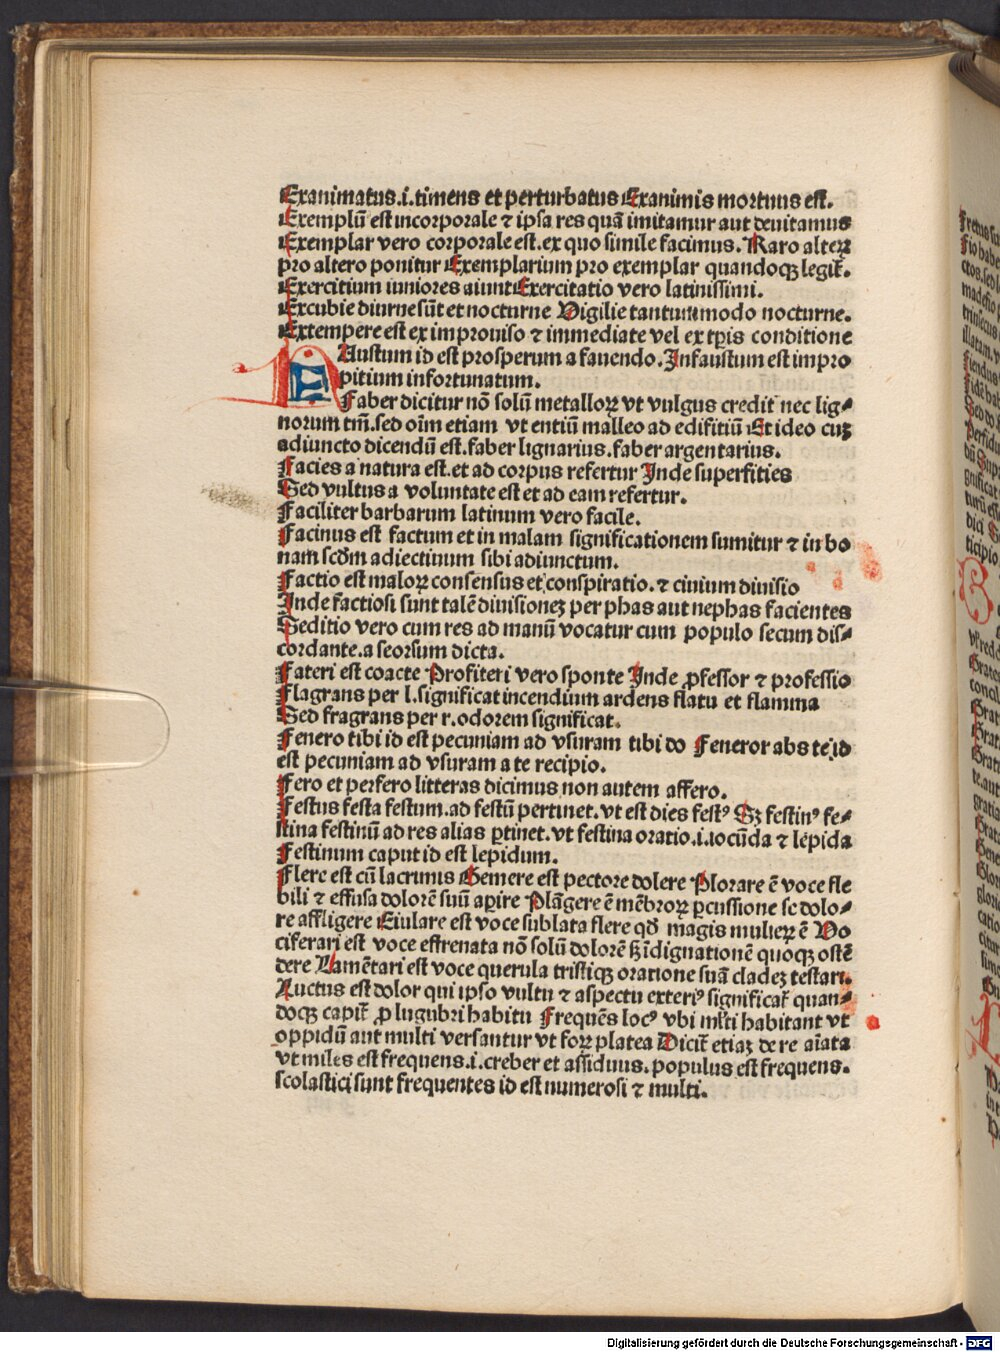 Exanimatus.i.timens et perturbatus Exanimis mortuus est.
Exemplū est incorporale ⁊ ipsa res quā imitamur aut deuitamus
Exemplar vero corporale est.ex quo simile facimus. Raro alterꝝ
pro altero ponitur Exemplarium pro exemplar quandoqꝫ legit̄.
Exercitium iuniores aiunt Exercitatio vero latinissimi.
Excubie diurne sūt et nocturne Uigilie tantummodo nocturne.
Extempere est ex improuiso ⁊ immediate vel ex tꝑis conditione
Austum id est prosperum a fauendo. Infaustum est impro
pitium infortunatum.
Faber dicitur nō solū metalloꝝ vt vulgus credit nec lig⸗
norum tm̄.sed oīm etiam vt entiū malleo ad edifitiū Et ideo cuꝫ
adiuncto dicendū est.faber lignarius.faber argentarius.
Facies a natura est.et ad corpus refertur Inde superfities
Sed vultus a voluntate est et ad eam refertur.
Faciliter barbarum latinum vero facile.
Facinus est factum et in malam significationem sumitur ⁊ in bo
nam scd̄m adiectiuum sibi adiunctum.
Factio est maloꝝ consensus et conspiratio.⁊ ciuium diuisio
Inde factiosi sunt talē diuisioneꝫ per phas aut nephas facientes
Seditio vero cum res ad manū vocatur cum populo secum dis⸗
cordante.a seorsum dicta.
Fateri est coacte Profiteri vero sponte Inde ꝓfessor ⁊ professio
Flagrans per l.significat incendium ardens flatu et flamma
Sed fragrans per r.odorem significat.
Fenero tibi id est pecuniam ad vsuram tibi do Feneror abs te id
est pecuniam ad vsuram a te recipio.
Fero et perfero litteras dicimus non autem affero.
Festus festa festum.ad festū pertinet.vt est dies festꝰ Sꝫ festinꝰ fe⸗
stina festinū ad res alias ꝑtinet.vt festina oratio.i.iocūda ⁊ lepida
Festinum caput id est lepidum.
Flere est cū lacrimis Gemere est pectore dolere Plorare ē voce fle
bili ⁊ effusa dolorē suū aꝑire Plāgere ē mēbroꝝ ꝑcussione se dolo⸗
re affligere Eiulare est voce sublata flere qd̄ magis mulieꝝ ē Uo
ciferari est voce effrenata nō solū dolorē sꝫ īdignationē quoqꝫ ostē
dere Lamētari est voce querula tristiqꝫ oratione suā cladeꝫ testari.
Luctus est dolor qui ipso vultu ⁊ aspectu exteriꝰ significat̄ quan⸗
doqꝫ capit̄ ꝓ lugubri habitu Frequēs locꝰ vbi ml̄ti habitant vt
oppidū aut multi versantur vt foꝝ platea Dicit̄ etiaꝫ de re aīata
vt miles est frequens.i.creber et assiduus.populus est frequens.
scolastici sunt frequentes id est numerosi ⁊ multi.
Digitalisierung gefördert durch die Deutsche Forschungsgemeinschaft - DFG